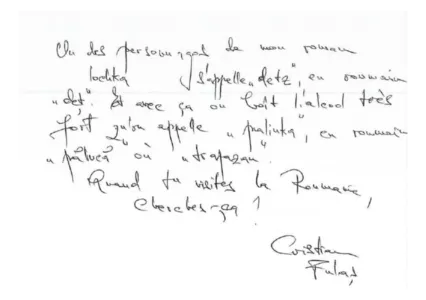 Un des personnages de mon roman
Iochka s'appelle „detz", en roumain
„deț". Et avec ça on boit l'alcool très
fort qu'on appelle „palinka", en roumain
„pălincă" où „trapazan".
Quand tu visites la Roumanie,
cherches-ça !
Cristian
Fulaș